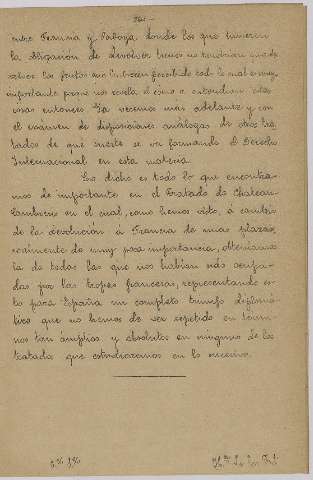 entre Francia y Saboya, donde los que tuvieren
la obligación de devolver bienes no tendrían que de-
volver los frutos que hubieren percibido todo lo cual es muy
importante porque nos revela el cómo se entendían estas
cosas entonces. Ya veremos más adelante y con
el examen de disposiciones análogas de otros tra-
tados de que suerte se va formando el Derecho
Internacional en esta materia.
Lo dicho es todo lo que encontra-
mos de importante en el Tratado de Chateau-
Cambresis en el cual, como hemos visto, á cambio
de la devolución á Francia de unas plazas,
realmente de muy poca importancia, obteníamos
la de todas las que nos habían sido
por las tropas francesas, representando es-
to para España un completo triunfo diplomá-
tico que no hemos de ver repetido en térmi-
nos tan ámplios y absolutos en ninguno de los
tratados que estudiaremos en lo sucesivo.